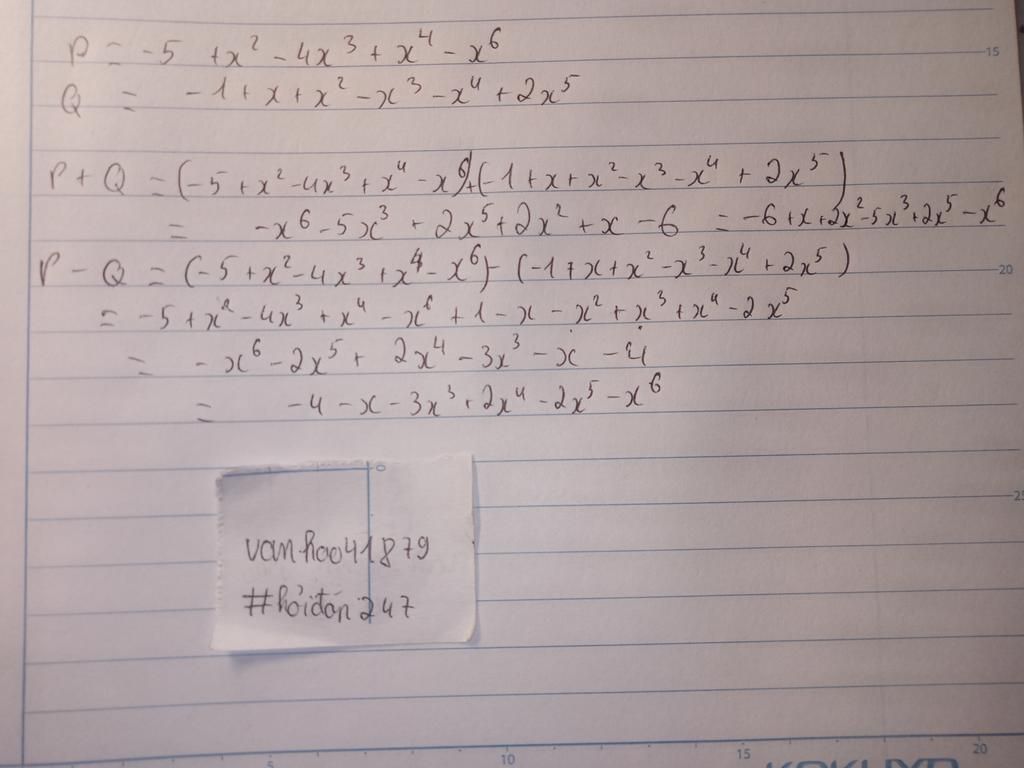 15
P = -5 + x² - 4x³ + x⁴ - x⁶
Q = -1 + x + x² - x³ - x⁴ + 2x⁵
P + Q = (-5 + x² - 4x³ + x⁴ - x⁶) + (-1 + x + x² - x³ - x⁴ + 2x⁵)
= -x⁶ - 5x³ + 2x⁵ + 2x² + x - 6 = -6 + x + 2x² - 5x³ + 2x⁵ - x⁶
P - Q = (-5 + x² - 4x³ + x⁴ - x⁶) - (-1 + x + x² - x³ - x⁴ + 2x⁵)
20
= -5 + x² - 4x³ + x⁴ - x⁶ + 1 - x - x² + x³ + x⁴ - 2x⁵
= -x⁶ - 2x⁵ + 2x⁴ - 3x³ - x - 4
= -4 - x - 3x³ + 2x⁴ - 2x⁵ - x⁶
0
25
vanhoo41879
#hỏiđán247
5 10 15 20
KOKUYO